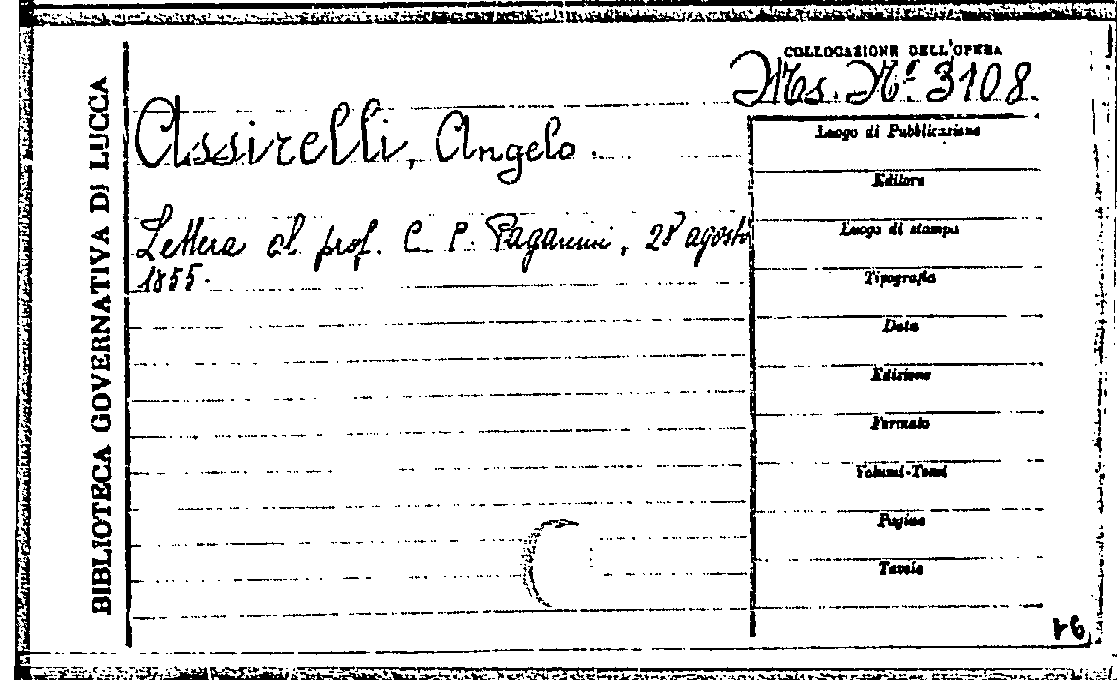 BIBLIOTECA GOVERNATIVA DI LUCCA
COLLOCAZIONE DELL'OPERA
Ms. Nº 3108.
Assirelli, Angelo.
Lettera al prof. C. P. Paganini, 28 agosto
1855.
Luogo di Pubblicazione
Editore
Luogo di stampa
Tipografia
Data
Edizione
Formato
Volumi-Tomi
Pagine
Tavole